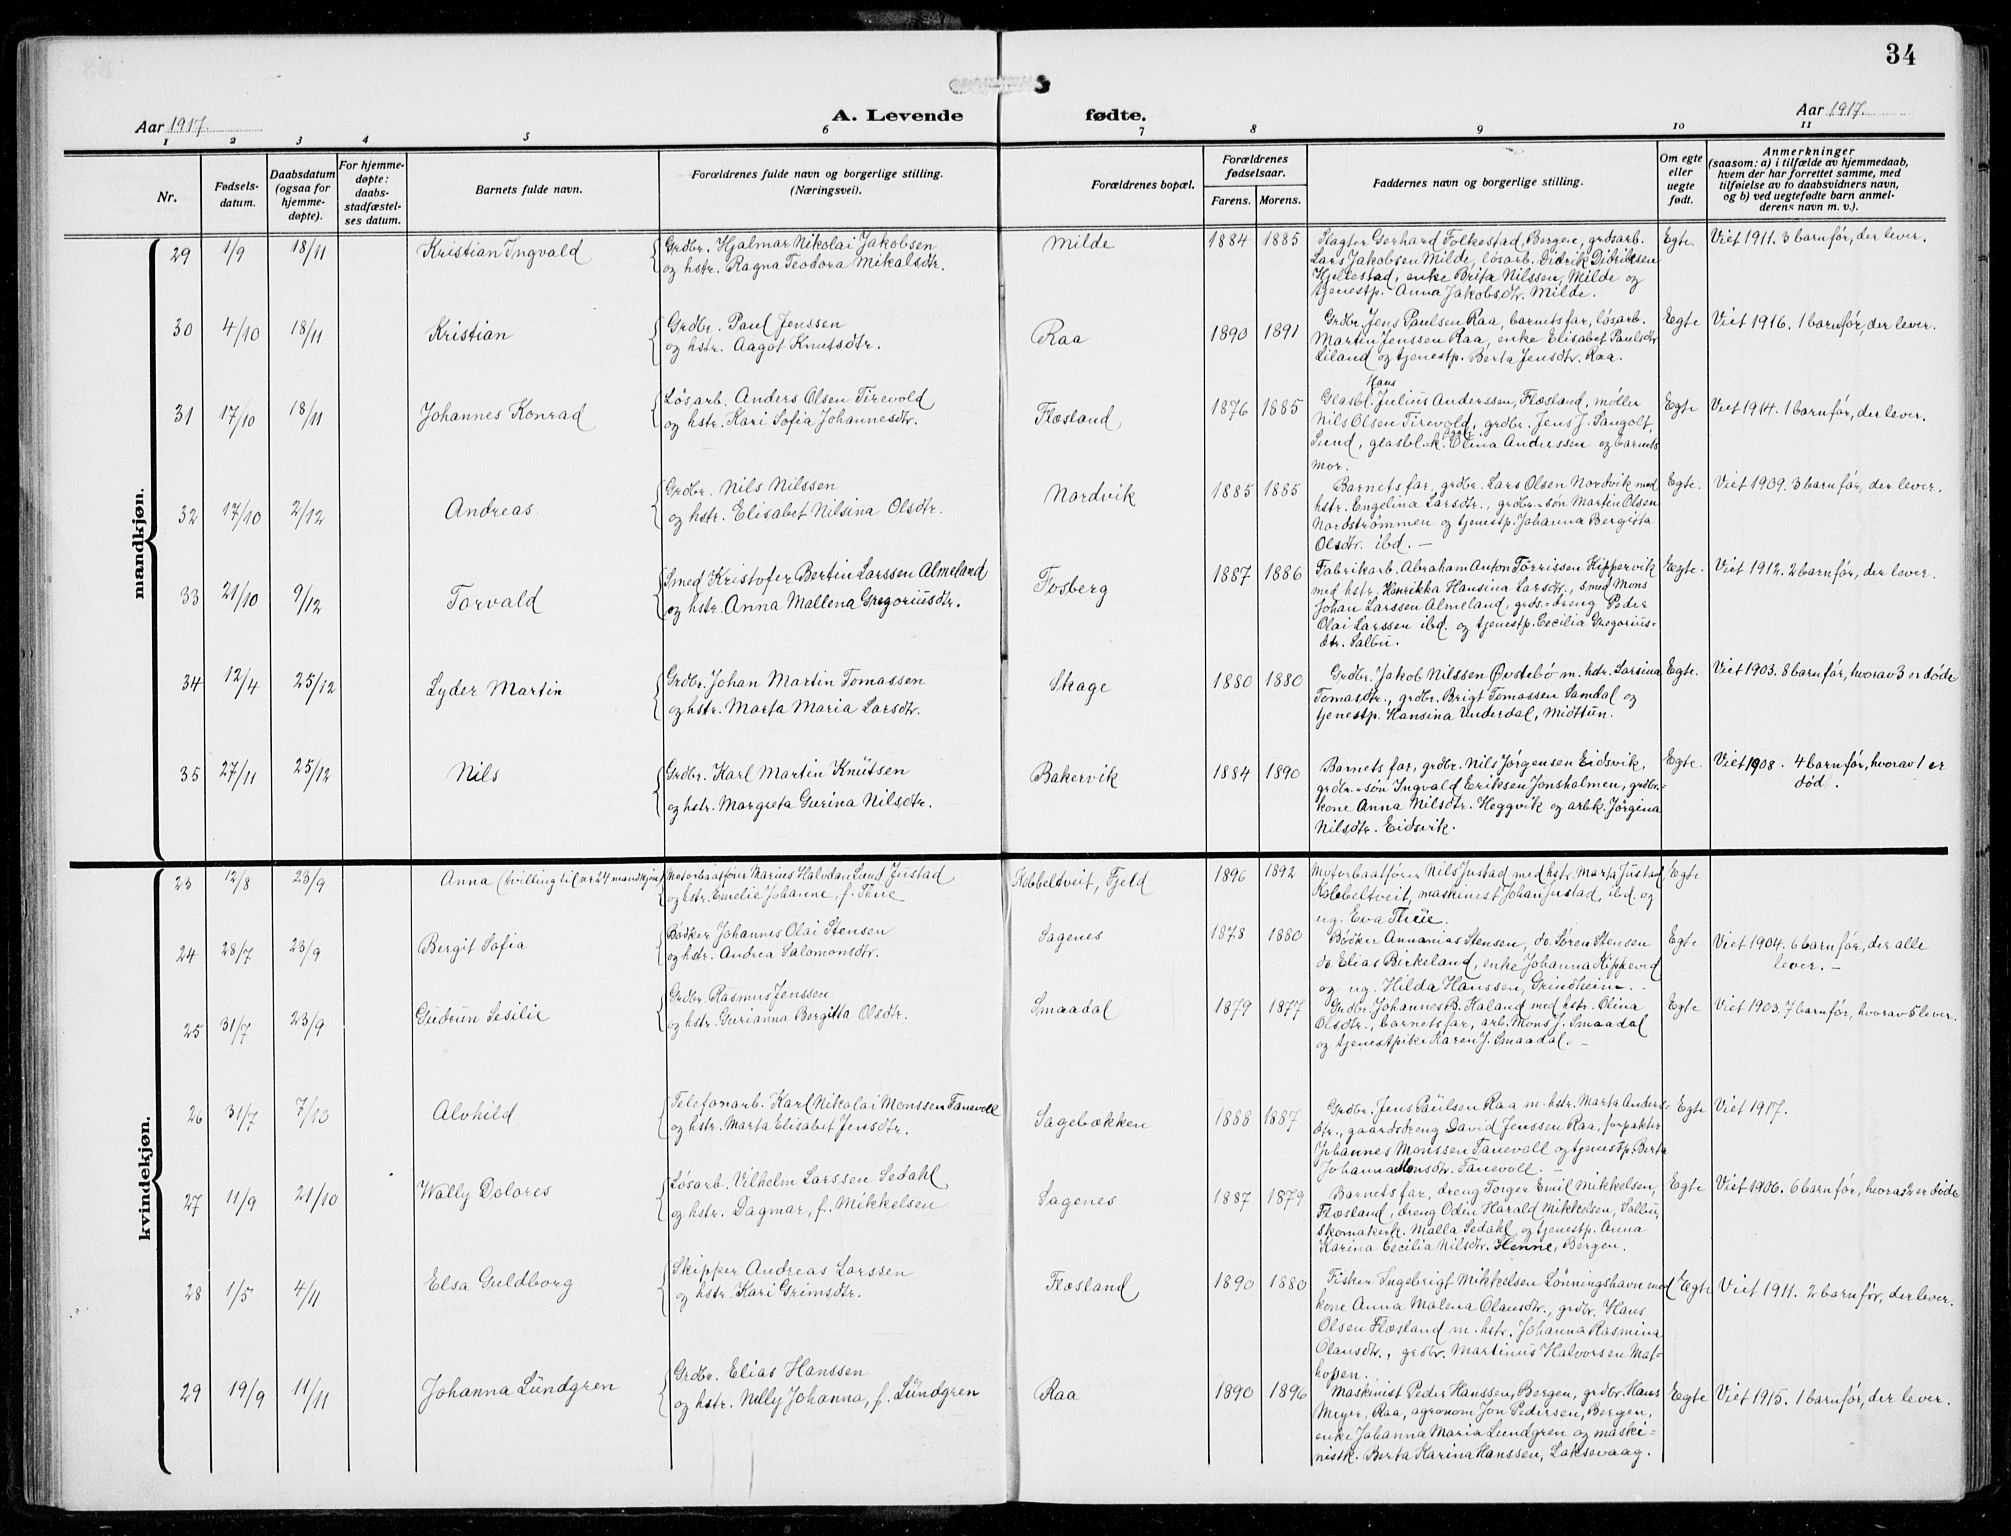 34
Aar 1917.
A. Levende fødte.
Aar 1917.
1 2 3 4 5 6 7 8 9 10 11
Nr.
Fødsels-
datum.
Daabsdatum
(ogsaa for
hjemme-
døpte).
For hjemme-
døpte:
daabs-
stadfæstel-
ses datum.
Barnets fulde navn.
Forældrenes fulde navn og borgerlige stilling.
(Næringsvei).
Forældrenes bopæl.
Forældrenes
fødselsaar.
Farens. Morens.
Faddernes navn og borgerlige stilling.
Om egte
eller
uegte
født.
Anmerkninger
(saasom: a) i tilfælde av hjemmedaab,
hvem der har forrettet samme, med
tilføielse av to daabsvidners navn,
og b) ved uegtefødte barn anmel-
derens navn m. v.).
mandkjøn.
29 1/9 18/11 Kristian Ingvald
Grdbr. Hjalmar Nikolai Jakobsen
og hstr. Ragna Teodora Mikalsdtr.
Milde 1884 1885
Slagter Gerhard Folkestad, Bergen, grdsarb.
Lars Jakobsen Milde, løsarb. Didrik Didriksen
Hjellestad, enke Brita Nilssen, Milde og
tjenestp. Anna Jakobsdtr. Milde.
Egte. Viet 1911. 3 barn før, der lever.
30 4/10 18/11 Kristian
Grdbr. Paul Jenssen
og hstr. Aagot Knutsdtr.
Raa 1890 1891
Grdbr. Jens Paulsen Raa, barnets far, løsarb.
Martin Jenssen Raa, enke Elisabet Paulsdtr
Liland og tjenestp. Berta Jensdtr. Raa.
Egte Viet 1916. 1 barn før, der lever.
31 17/10 18/11 Johannes Konrad
Løsarb. Anders Olsen Tirevold
og hstr. Kari Sofia Johannesdtr.
Flæsland 1876 1885
Hans
Glasbl. Julius Anderssen, Flæsland, møller
Nils Olsen Tirevold, grdbr. Jens J. Sangolt,
Sund, glasbl.-k. Olina Anderssen og barnets
mor.
Egte Viet 1914. 1 barn før, der lever.
32 17/10 2/12 Andreas.
Grdbr. Nils Nilssen
og hstr. Elisabet Nilsina Olsdtr.
Nordvik 1885 1885
Barnets far, grdbr. Lars Olsen Nordvik med
hstr. Engelina Larsdtr., grdbr.-søn Martin Olsen
Nordstrømmen og tjenestp. Johanna Bergitta
Olsdtr. ibd. —
Egte. Viet 1909. 3 barn før, der lever.
33 21/10 9/12 Torvald
Smed Kristofer Bertin Larssen Almeland
og hstr. Anna Mallena Gregoriusdtr.
Fosberg 1887 1886
Fabrikarb. Abraham Anton Tørrissen Kippervik
med hstr. Henrikka Hansina Larsdtr., smed Mons
Johan Larssen Almeland, grds.-dreng Peder
Olai Larssen ibd. og tjenestp. Cecilia Gregorius-
dtr. Salbu.
Egte. Viet 1912. 2 barn før, der lever.
34 12/4 25/12 Lyder Martin
Grdbr. Johan Martin Tomassen
og hstr. Marta Maria Larsdtr.
Skage 1880 1880
Grdbr. Jakob Nilssen Øvstebø m. hstr. Larsina
Tomasdtr., grdbr. Brigt Tomassen Samdal og
tjenestp. Hansina Underdal, Midttun.
Egte. Viet 1903. 8 barn før, hvorav 3 er døde
35 27/11 25/12 Nils
Grdbr. Karl Martin Knutsen
og hstr. Margreta Gurina Nilsdtr.
Bakervik 1884 1890
Barnets far, grdbr. Nils Jørgensen Eidsvik,
grdbr.-søn Ingvald Eriksen Jonsholmen, grdbr.-
kone Anna Nilsdtr. Heggvik og arbk. Jørgina
Nilsdtr. Eidsvik.
Egte. Viet 1908. 4 barn før, hvorav 1 er
død.
kvindekjøn.
23 12/8 23/9 Anna (tvilling til nr 24 mandkjøn)
Motorbaatfører Marius Halvdan Lund Justad
og hstr. Emelie Johanne, f. Thue
Kobbeltveit, Fjeld 1896 1892
Motorbaatfører Nils Justad med hstr. Marta Justad
Kobbeltveit, maskinist Johan Justad, ibd. og
ug. Eva Thue.
Egte
24 28/7 23/9 Bergit Sofia
Bødker Johannes Olai Stensen
og hstr. Andrea Salomonsdtr.
Sagenes 1878 1880
Bødker Annanias Stensen, do. Søren Stensen
do. Elias Birkeland, enke Johanna Kippevid
og ug. Hilda Hanssen, Grindheim.
Egte Viet 1904. 6 barn før, der alle
lever. —
25 31/7 23/9 Gudrun Sesilie
Grdbr. Rasmus Jenssen
og hstr. Gurianna Bergitta Olsdtr.
Smaadal 1879 1877
Grdbr. Johannes B. Haland med hstr. Olina
Olsdtr., barnets far, arb. Mons J. Smaadal
og tjenestpike Karen J. Smaadal. —
Egte Viet 1903. 7 barn før, hvorav 5 lever.
26 31/7 7/10 Alvhild
Telefonarb. Karl Nikolai Monssen Fanevoll
og hstr. Marta Elisabet Jensdtr.
Sagebækken 1888 1887
Grdbr. Jens Paulsen Raa m. hstr. Marta Anders-
dtr., gaardsdreng David Jenssen Raa, forpakter
Johannes Monssen Fanevoll og tjenestp. Berta
Johanna Monsdtr. Fanevoll. —
Egte Viet 1917.
27 11/9 21/10 Wally Dolores
Løsarb. Vilhelm Larssen Sedahl
og hstr. Dagmar, f. Mikkelsen
Sagenes 1887 1879
Barnets far, dreng Torger Emil Mikkelsen,
Flæsland, dreng Odin Harald Mikkelsen, Salbu,
skomakerk. Malla Sedahl og tjenestp. Anna
Karina Cecilia Nilsdtr. Henne, Bergen.
Egte Viet 1906. 6 barn før, hvorav 2 er døde
28 1/5 4/11 Elsa Guldborg
Skipper Andreas Larssen
og hstr. Kari Grimsdtr.
Flæsland 1890 1880
Fisker Ingebrigt Mikkelsen Lønningshavn med
kone Anna Malena Olansdtr., grdbr. Hans
Olsen Flæsland m. hstr. Johanna Rasmina
Olansdtr., grdbr. Martinus Halvorsen Mat-
kopen.
Egte Viet 1911. 2 barn før, der lever.
29 19/9 11/11 Johanna Lundgren
Grdbr. Elias Hanssen
og hstr. Nelly Johanna, f. Lundgren
Raa 1890 1896
Maskinist Peder Hanssen, Bergen, grdbr. Hans
Meyer, Raa, agronom Jon Pedersen, Bergen,
enke Johanna Maria Lundgren og maski-
nistk. Berta Karina Hanssen, Laksevaag.
Egte Viet 1915. 1 barn før, der lever.